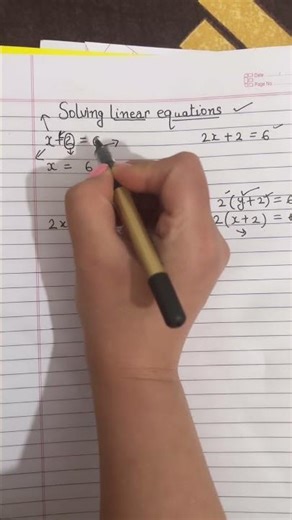 Date
Page No.
Solving linear equations ✓
x + 2 =
2x + 2 = 6 ✓
x = 6
2(y+2) = 6
2x
2(x+2) =